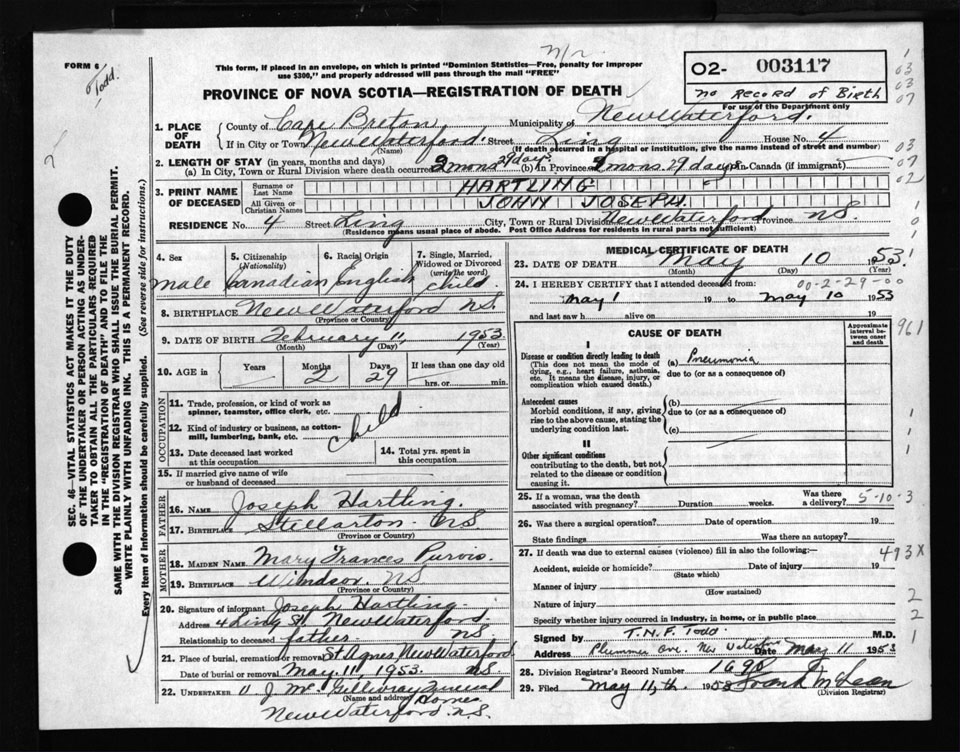 FORM 6
Todd.
N/R.
This form, if placed in an envelope, on which is printed "Dominion Statistics—Free, penalty for improper
use $300," and properly addressed will pass through the mail "FREE"
O2- 003117
no Record of Birth
For use of the Department only
PROVINCE OF NOVA SCOTIA—REGISTRATION OF DEATH
SEC. 46—VITAL STATISTICS ACT MAKES IT THE DUTY
OF THE UNDERTAKER OR PERSON ACTING AS UNDER-
TAKER TO OBTAIN ALL THE PARTICULARS REQUIRED
IN THE "REGISTRATION OF DEATH" AND TO FILE THE
SAME WITH THE DIVISION REGISTRAR WHO SHALL ISSUE THE BURIAL PERMIT.
WRITE PLAINLY WITH UNFADING INK. THIS IS A PERMANENT RECORD.
Every item of information should be carefully supplied. (See reverse side for instructions.)
1. PLACE OF DEATH
County of Cape Breton Municipality of New Waterford.
If in City or Town New Waterford. Street King House No. 4
(Name) (If death occurred in a hospital or institution, give the name instead of street and number)
2. LENGTH OF STAY (in years, months and days)
(a) In City, Town or Rural Division where death occurred 2 mons 29 days (b) In Province 2 mons. 29 days (c) In Canada (if immigrant)
3. PRINT NAME OF DECEASED
Surname or Last Name HARTLING
All Given or Christian Names JOHN JOSEPH.
RESIDENCE No. 4 Street King City, Town or Rural Division New Waterford Province N.S.
(Residence means usual place of abode. Post Office Address for residents in rural parts not sufficient)
4. Sex male
5. Citizenship (Nationality) Canadian
6. Racial Origin English
7. Single, Married, Widowed or Divorced (write the word) child
8. BIRTHPLACE New Waterford N.S.
(Province or Country)
9. DATE OF BIRTH February 11 1953
(Month) (Day) (Year)
10. AGE in Years Months 2 Days 29 If less than one day old
hrs. or min.
OCCUPATION
11. Trade, profession, or kind of work as
spinner, teamster, office clerk, etc.
12. Kind of industry or business, as cotton-
mill, lumbering, bank, etc. child
13. Date deceased last worked at this occupation
14. Total yrs. spent in this occupation
15. If married give name of wife
or husband of deceased
FATHER
16. NAME Joseph Hartling.
17. BIRTHPLACE Stellarton NS
(Province or Country)
MOTHER
18. MAIDEN NAME Mary Frances Purvis.
19. BIRTHPLACE Windsor. NS
(Province or Country)
20. Signature of informant Joseph Hartling
Address 4 King St. New Waterford.
Relationship to deceased father NS,
21. Place of burial, cremation or removal St Agnes New Waterford
Date of burial or removal May 11, 1953. NS
22. UNDERTAKER J. Mc Gillivray Funeral Home
(Name and address)
New Waterford. N.S.
MEDICAL CERTIFICATE OF DEATH
23. DATE OF DEATH May 10 1953.
(Month) (Day) (Year)
24. I HEREBY CERTIFY that I attended deceased from: 00-2-29-00
May 1 19 to May 10 1953
and last saw h alive on 19
CAUSE OF DEATH
Approximate interval between onset and death
I
Disease or condition directly leading to death
(This does not mean the mode of
dying, e.g., heart failure, asthenia,
etc. It means the disease, injury, or
complication which caused death.)
(a) Pneumonia
due to (or as a consequence of)
Antecedent causes
Morbid conditions, if any, giving
rise to the above cause, stating the
underlying condition last.
(b)
due to (or as a consequence of)
(c)
II
Other significant conditions
contributing to the death, but not
related to the disease or condition
causing it.
25. If a woman, was the death
associated with pregnancy? Duration weeks. Was there a delivery? 5-10-3
26. Was there a surgical operation? Date of operation 19
State findings Was there an autopsy?
27. If death was due to external causes (violence) fill in also the following:— 493X
Accident, suicide or homicide? Date of injury 19
(State which)
Manner of injury
(How sustained)
Nature of injury
Specify whether injury occurred in industry, in home, or in public place
Signed by T.N.F. Todd M.D.
Address Plummer Ave. New Waterford Date May 11 1953
28. Division Registrar's Record Number 1690
29. Filed May 11th 1953 Frank McLean
(Division Registrar)
1
03
03
07
03
07
02
1
0
1
1
961
1
1
1
2
2
1